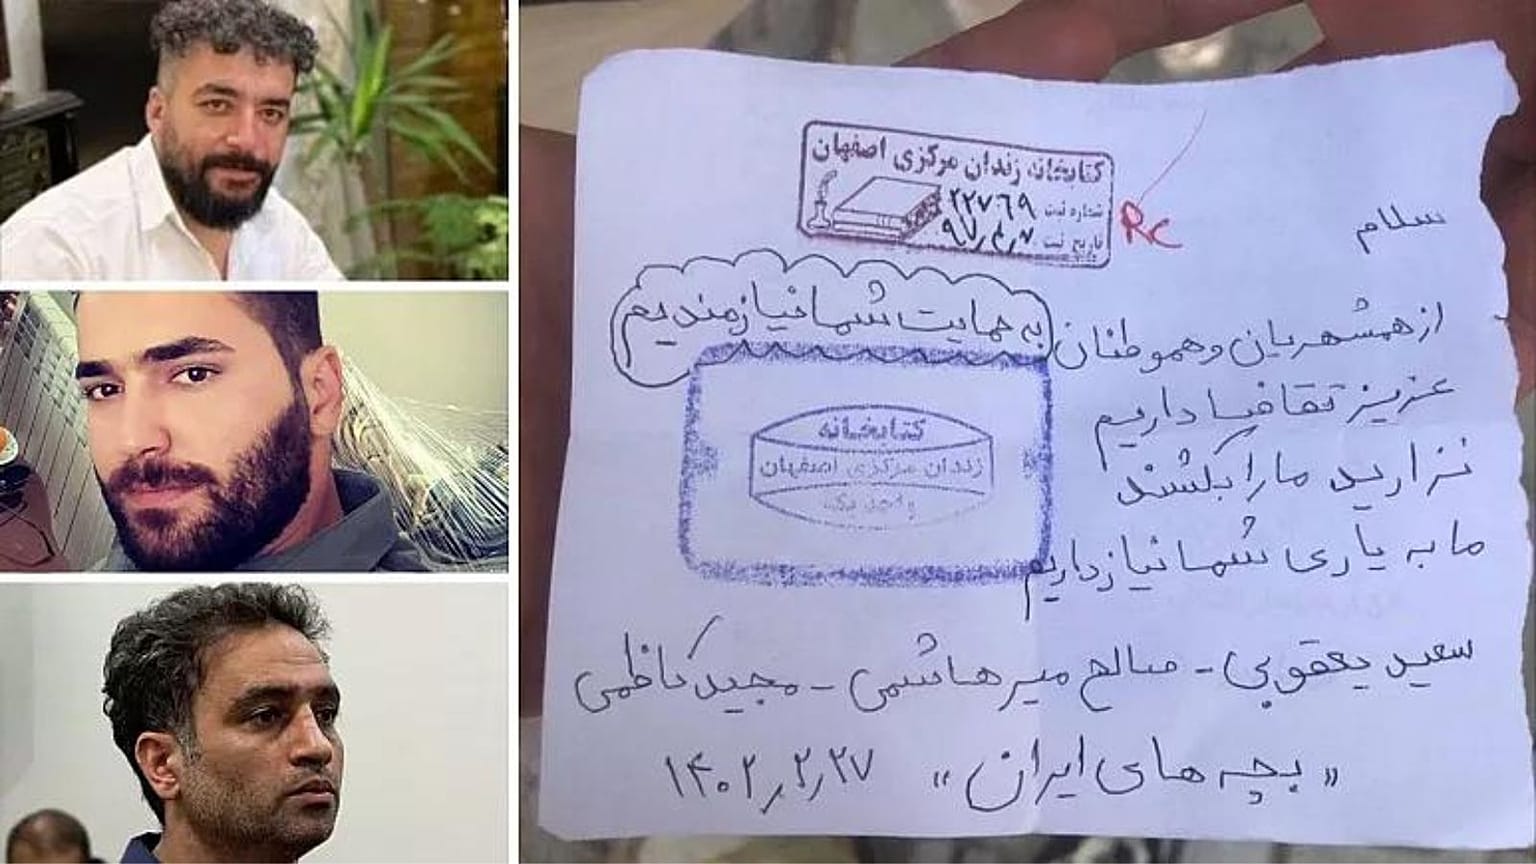 کتابخانه زندان مرکزی اصفهان
شماره ثبت ۲۲۷۶۹
تاریخ ثبت ۹۷٫۲٫۷
Rc
سلام
از همشهریان و هموطنان به حمایت شما نیازمندیم
عزیز تقاضا داریم
نزارید ما را بکشند
ما به یاری شما نیاز داریم
کتابخانه
زندان مرکزی اصفهان
واحد یک
سعید یعقوبی - صالح میرهاشمی - مجید کاظمی
«بچه های ایران» ۱۴۰۲٫۲٫۲۷